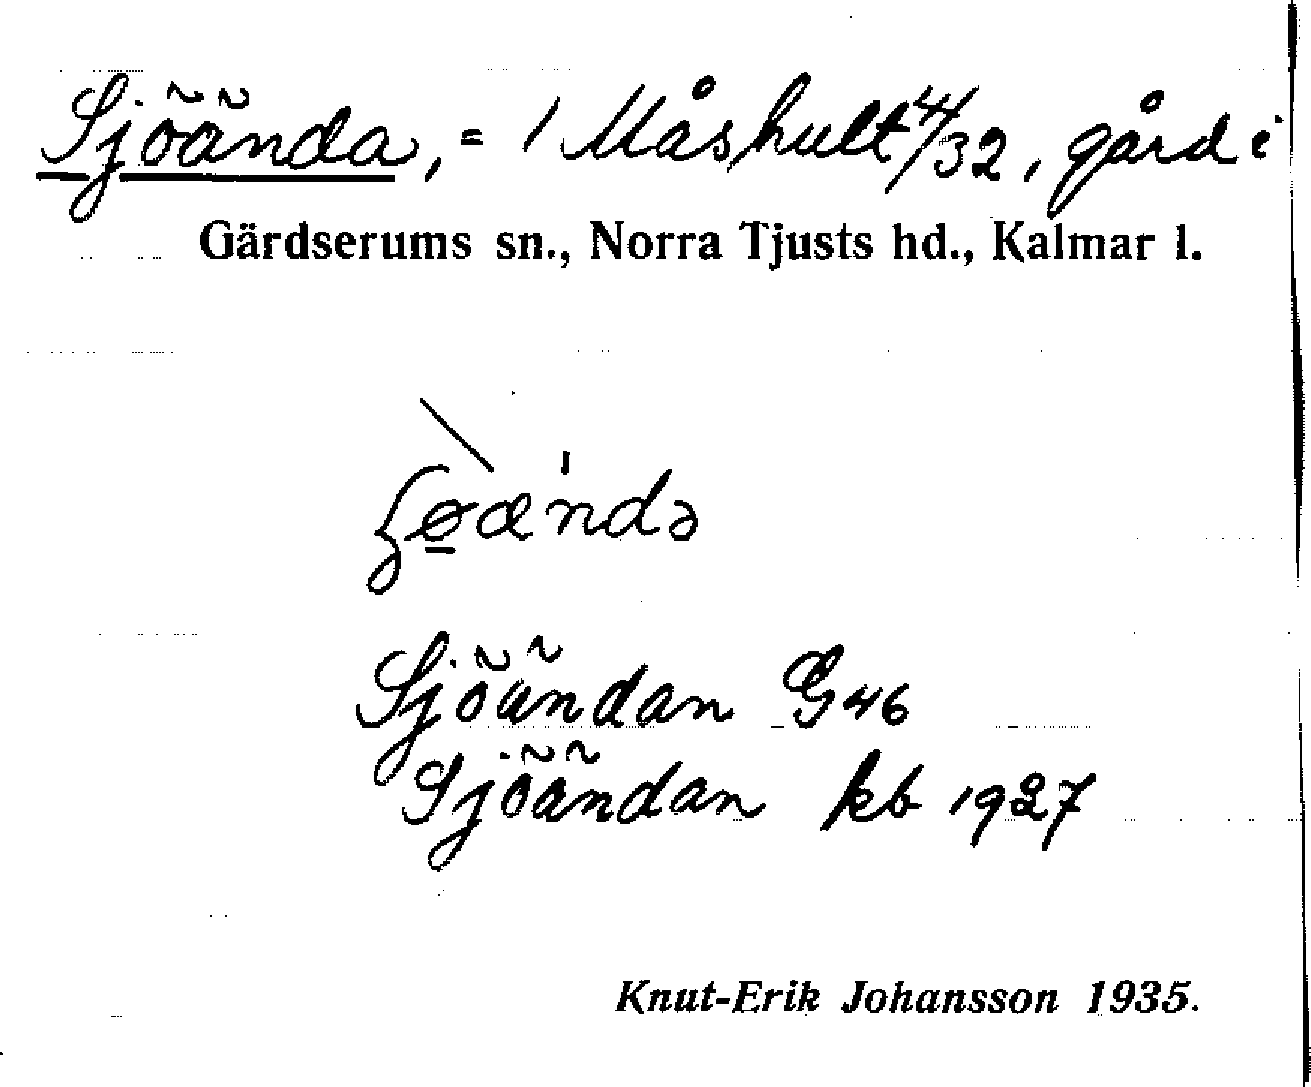 Sjöända, = 1 Måshult 4/32, gård i
Gärdserums sn., Norra Tjusts hd., Kalmar l.
Sjöändan G 46
Sjöändan kb 1927
Knut-Erik Johansson 1935.